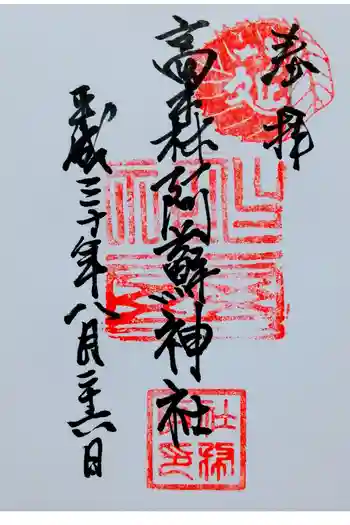 奉拝
高森阿蘇神社
平成三十年八月二十六日